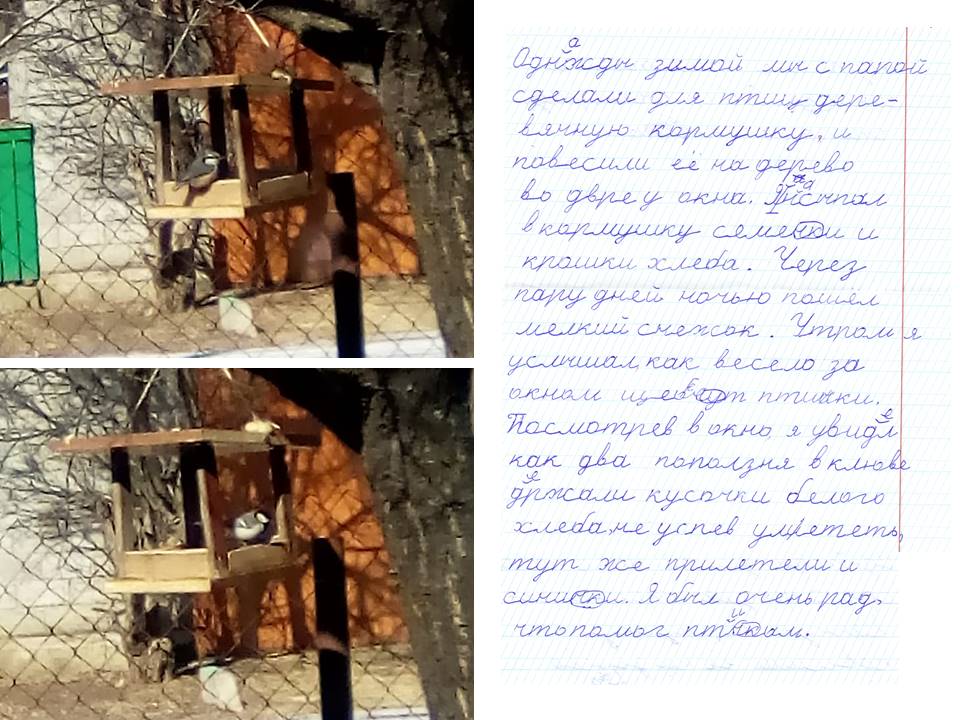 Однажды зимой мы с папой
сделали для птиц дере-
вянную кормушку, и
повесили её на дерево
во дврeу окна. Я
в кормушку семечки и
крошки хлеба. Через
пару дней ночью пошёл
мелкий снежок. Утром я
услышал, как весело за
окном щебечут птички.
Посмотрев в окно, я увидел
как два поползня в клюве
держали кусочки белого
хлеба, не успев улететь,
тут же прилетели и
синички. Я был очень рад,
что помог птичкам.